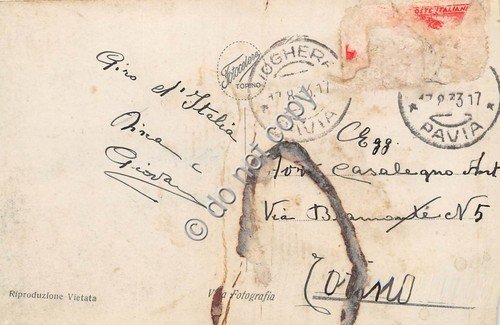 Giro d'Italia
Nina e
Giovan
Fotocelere
TORINO
VOGHERA
17.8.33.17
PAVIA
POSTE ITALIANE
17.8.33.17
PAVIA
Egg.
Casalegno
Via Bramante N 5
Torino
Riproduzione Vietata
Vera Fotografia
do not copy